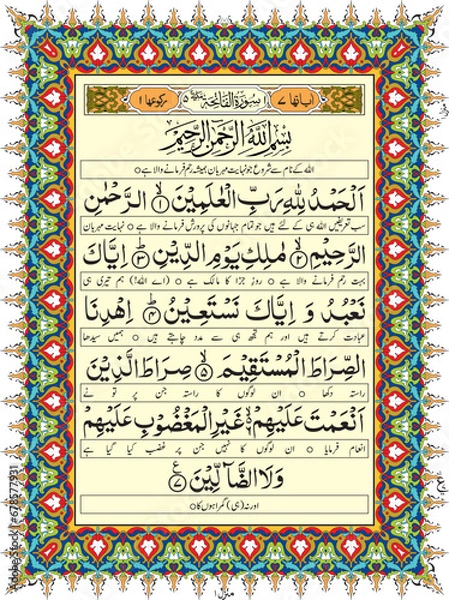 اٰیاتھا ۷ ۱ سُوْرَۃُ الْفَاتِحَۃِ مَکِّیَّۃٌ ۵ رکوعھا ۱
بِسْمِ اللّٰهِ الرَّحْمٰنِ الرَّحِیْمِ
اللہ کے نام سے شروع جو نہایت مہربان ہمیشہ رحم فرمانے والا ہے ○
اَلْحَمْدُ لِلّٰهِ رَبِّ الْعٰلَمِیْنَ ۙ﴿۱﴾ الرَّحْمٰنِ
سب تعریفیں اللہ ہی کے لئے ہیں جو تمام جہانوں کی پرورش فرمانے والا ہے ○ نہایت مہربان
الرَّحِیْمِ ۙ﴿۲﴾ مٰلِكِ یَوْمِ الدِّیْنِ ؕ﴿۳﴾ اِیَّاكَ
بہت رحم فرمانے والا ہے ○ روز جزا کا مالک ہے ○ (اے اللہ!) ہم تیری ہی
نَعْبُدُ وَ اِیَّاكَ نَسْتَعِیْنُ ؕ﴿۴﴾ اِهْدِنَا
عبادت کرتے ہیں اور ہم تجھ ہی سے مدد چاہتے ہیں ○ ہمیں سیدھا
الصِّرَاطَ الْمُسْتَقِیْمَ ۙ﴿۵﴾ صِرَاطَ الَّذِیْنَ
راستہ دکھا ○ ان لوگوں کا راستہ جن پر تو نے
اَنْعَمْتَ عَلَیْهِمْ ۙ۬﴿۶﴾ غَیْرِ الْمَغْضُوْبِ عَلَیْهِمْ
انعام فرمایا ○ ان لوگوں کا نہیں جن پر غضب کیا گیا ہے
وَ لَا الضَّآلِّیْنَ ﴿۷﴾ ع
اور نہ (ہی) گمراہوں کا ○
منزل ۱
Adobe Stock | #678577931